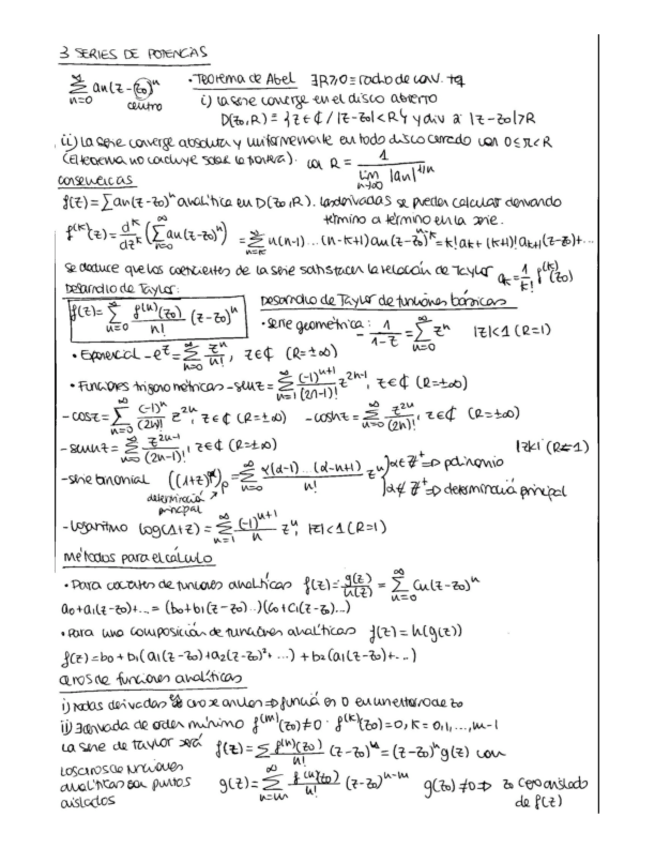 3 SERIES DE POTENCIAS
∞ Σ n=0 an(z-z0)^n
centro
• Teorema de Abel ∃R≥0 ≡ radio de conv. tq
i) La serie converge en el disco abierto
D(z0,R) ≡ {z∈ℂ / |z-z0|<R} y div a |z-z0|>R
ii) La serie converge absoluta y uniformemente en todo disco cerrado con 0≤r<R
(El teorema no concluye sobre la frontera). con R = 1 / lim n→∞ |an|^1/n
consecuencias
f(z)=Σan(z-z0)^n analítica en D(z0,R). Las derivadas se pueden calcular derivando
término a término en la serie.
f^(k)(z)= d^k/dz^k (Σ n=0 ∞ an(z-z0)^n) = Σ n=k ∞ n(n-1)...(n-k+1)an(z-z0)^n-k = k!ak+(k+1)!ak+1(z-z0)+...
Se deduce que los coeficientes de la serie satisfacen la relación de Taylor ak = 1/k! f^(k)(z0)
Desarrollo de Taylor:
f(z)= Σ n=0 ∞ f^(n)(z0)/n! (z-z0)^n
Desarrollo de Taylor de funciones básicas
• serie geométrica: - 1/1-z = Σ n=0 ∞ z^n |z|<1 (R=1)
• Exponencial - e^z = Σ n=0 ∞ z^n/n!, z∈ℂ (R=±∞)
• Funciones trigonométricas - senz = Σ n=1 ∞ (-1)^n+1/(2n-1)! z^2n-1, z∈ℂ (R=±∞)
- cosz = Σ n=0 ∞ (-1)^n/(2n)! z^2n, z∈ℂ (R=±∞) - coshz = Σ n=0 ∞ z^2n/(2n)!, z∈ℂ (R=±∞)
- senhz = Σ n=0 ∞ z^2n-1/(2n-1)!, z∈ℂ (R=±∞)
|z|<1 (R=1)
- serie binomial ((1+z)^α)p = Σ n=0 ∞ α(α-1)...(α-n+1)/n! z^n } α∈ℤ+ ⇒ polinomio
determinación principal
α∉ℤ+ ⇒ determinación principal
- Logaritmo log(1+z) = Σ n=1 ∞ (-1)^n+1/n z^n, |z|<1 (R=1)
Métodos para el cálculo
• Para cocientes de funciones analíticas f(z)= g(z)/h(z) = Σ n=0 ∞ Cn(z-z0)^n
a0+a1(z-z0)+... = (b0+b1(z-z0)..)(C0+C1(z-z0)...)
• Para una composición de funciones analíticas f(z)=h(g(z))
f(z)=b0+b1(a1(z-z0)+a2(z-z0)²+...)+b2(a1(z-z0)+...)
Ceros de funciones analíticas
i) Todas derivadas cero se anulen ⇒ función es 0 en un entorno de z0
ii) ∃ derivada de orden mínimo f^(m)(z0)≠0 · f^(k)(z0)=0, k=0,1,...,m-1
La serie de taylor será f(z)=Σ f^(n)(z0)/n! (z-z0)^n = (z-z0)^m g(z) con
Los ceros de funciones
analíticas son puntos
aislados
g(z)= Σ n=m ∞ f^(n)(z0)/n! (z-z0)^n-m g(z0)≠0 ⇒ z0 cero aislado
de f(z)